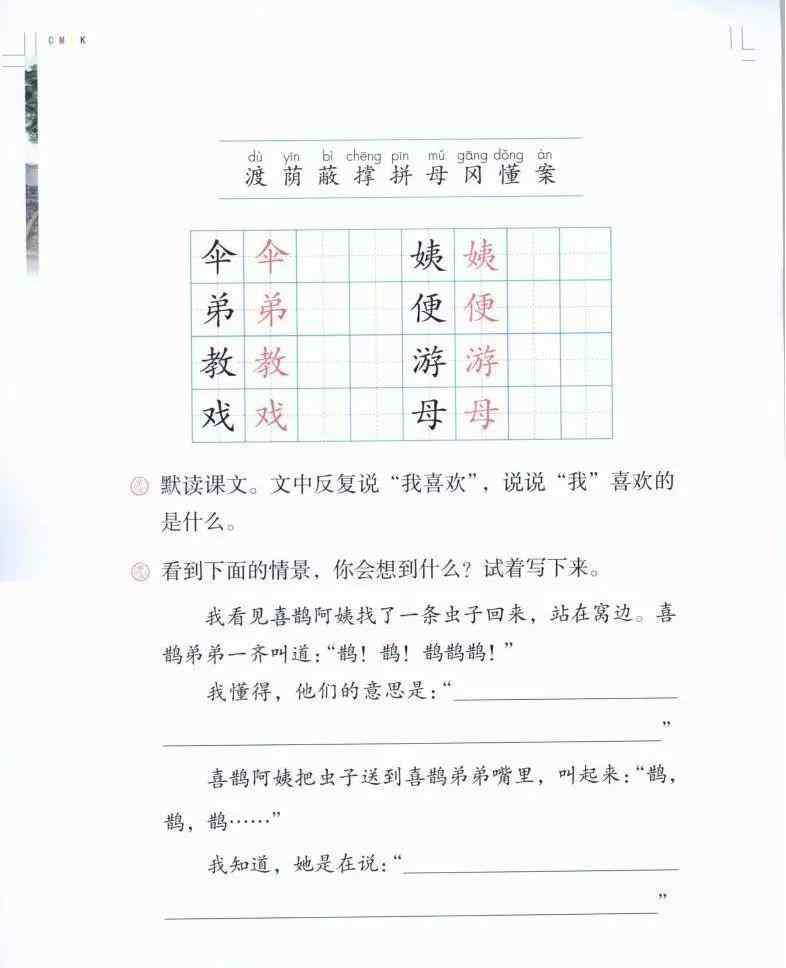 C M Y K
dù yìn bì chēng pīn mǔ gāng dǒng àn
渡 荫 蔽 撑 拼 母 冈 懂 案
伞 伞 姨 姨
弟 弟 便 便
教 教 游 游
戏 戏 母 母
默读课文。文中反复说“我喜欢”，说说“我”喜欢的
是什么。
看到下面的情景，你会想到什么？试着写下来。
我看见喜鹊阿姨找了一条虫子回来，站在窝边。喜
鹊弟弟一齐叫道：“鹊！鹊！鹊鹊鹊！”
我懂得，他们的意思是：“
”
喜鹊阿姨把虫子送到喜鹊弟弟嘴里，叫起来：“鹊，
鹊，鹊……”
我知道，她是在说：“
”